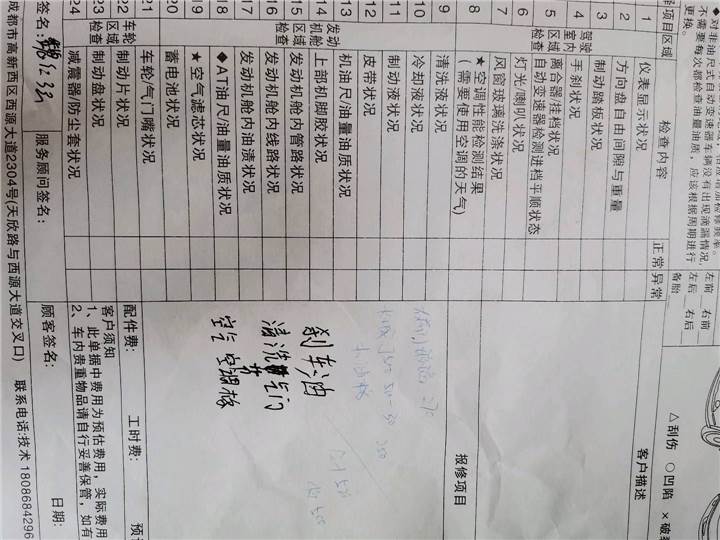 ◆对非油尺式自动变速器车辆没有出现滴漏情况,
不需要每次都检查油量油质，应该根据周期进行
更换。
左前 右前
左后 右后
备胎
△刮伤 ○凹陷 ×破裂
项目区域 检查内容 正常 异常 客户描述
驾驶室内
1 仪表显示状况
2 方向盘自由间隙与重量
3 制动踏板状况
4 手刹状况
5 离合器挂档状况
自动变速器检测进档平顺状态
区域检查
6 灯光/喇叭状况
7 风窗玻璃洗涤状况
8 ★空调性能检测结果
(需要使用空调的天气)
报修项目
9 清洗液状况
10 冷却液状况
11 制动液状况
12 皮带状况
发动机舱区域检查
13 机油尺/油量油质状况
14 上部机脚胶状况
15 发动机舱内管路状况
16 发动机舱内线路状况
17 发动机舱内油渍状况
18 ◆AT油尺/油量油质状况
19 ★空气滤芯状况
20 蓄电池状况
刹车油
清洗节气门
空气 空调格
车轮区域检查
21 车轮/气门嘴状况
22 制动片状况
23 制动盘状况
24 减震器/防尘套状况
配件费: 工时费:
客户须知
1、此单据中费用为预估费用，实际费用
2、车内贵重物品请自行妥善保管，如有
签名: 服务顾问签名: 顾客签名: 日期:
成都市高新西区西源大道2304号(天欣路与西源大道交叉口) 联系电话:技术 18086684296